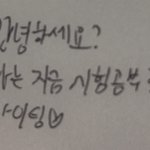 안녕하세요?
나는 지금 시험공부
파이팅♡